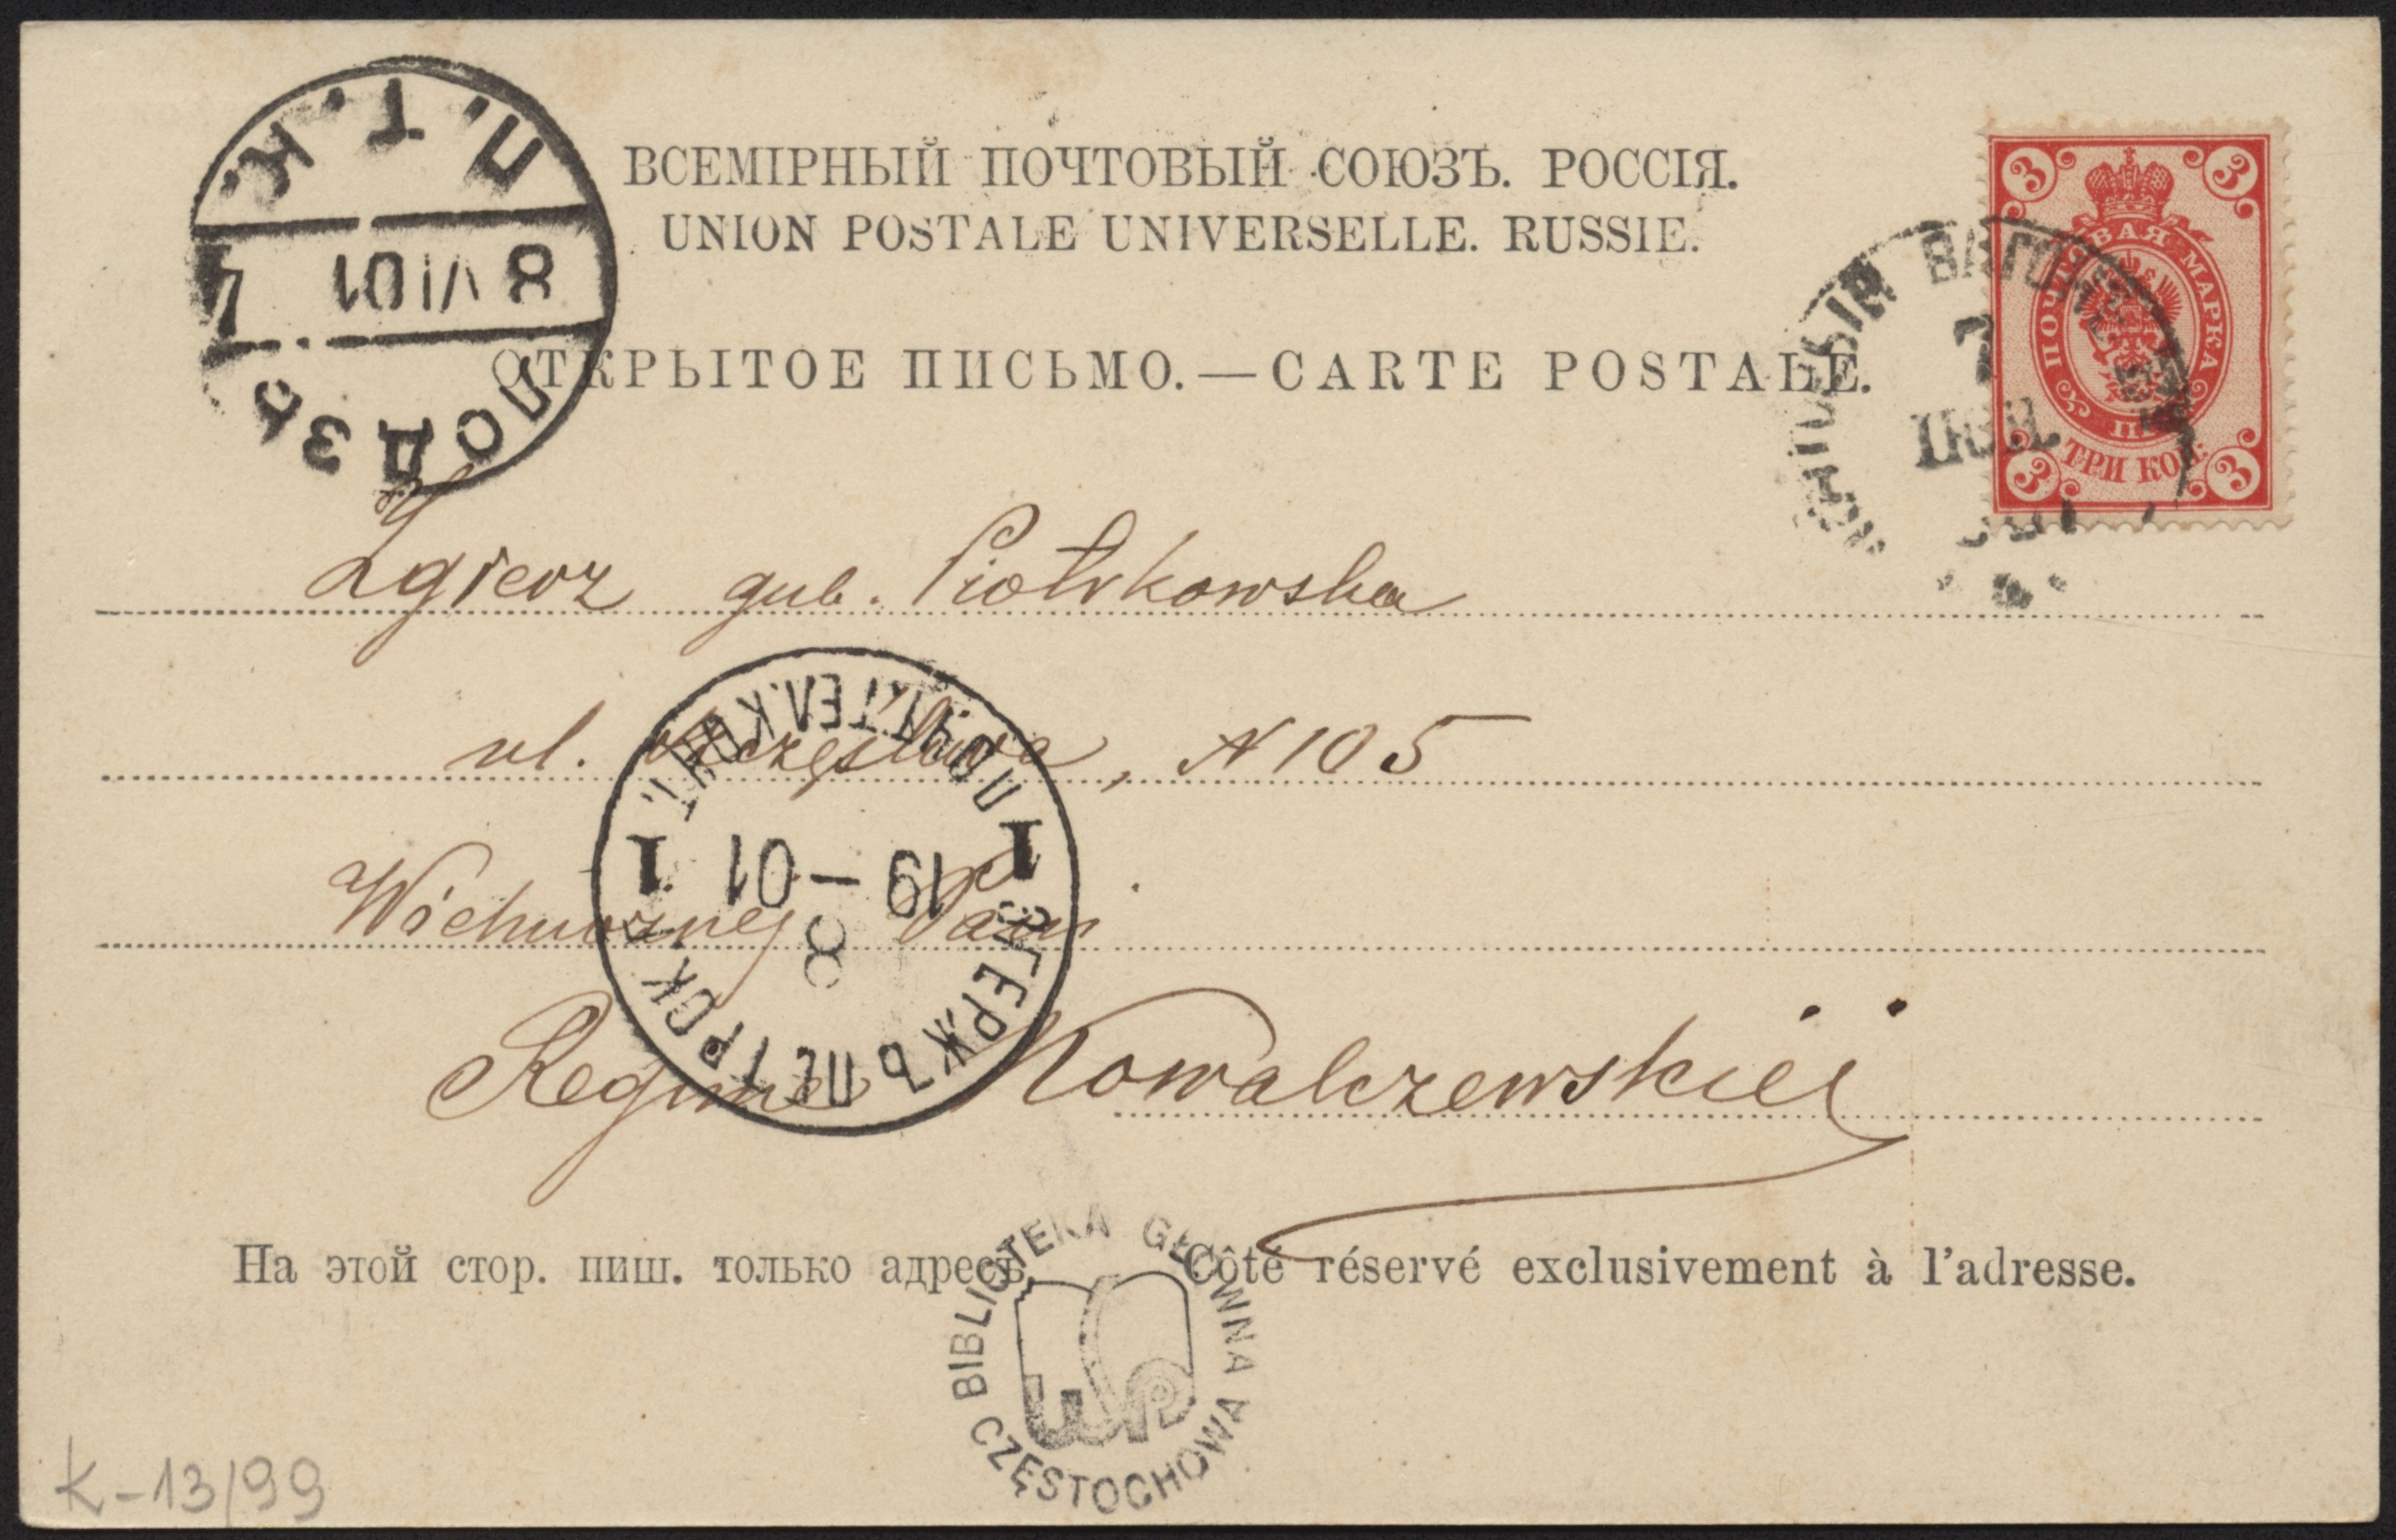 П. Т. К.
8 VI 01
ЛОДЗЬ
ВСЕМІРНЫЙ ПОЧТОВЫЙ СОЮЗЪ. РОССІЯ.
UNION POSTALE UNIVERSELLE. RUSSIE.
ОТКРЫТОЕ ПИСЬМО.—CARTE POSTALE.
3 3
ПОЧТОВАЯ МАРКА
ТРИ КОП.
3 3
ВАГОНЪ
7
Zgierz gub. Piotrkowska
ul. Szczęśliwa, N 105
ПОЧТ.ТЕЛ.КОНТ.
1 19 – 01 1
8
ЗГЕРЖЪ ПЕТРОК
Wielmożnej Pani
Reginie Kowalczewskiej
На этой стор. пиш. только адресъ. Côté réservé exclusivement à l'adresse.
BIBLIOTEKA GŁÓWNA
WSP
CZĘSTOCHOWA
K-13/99